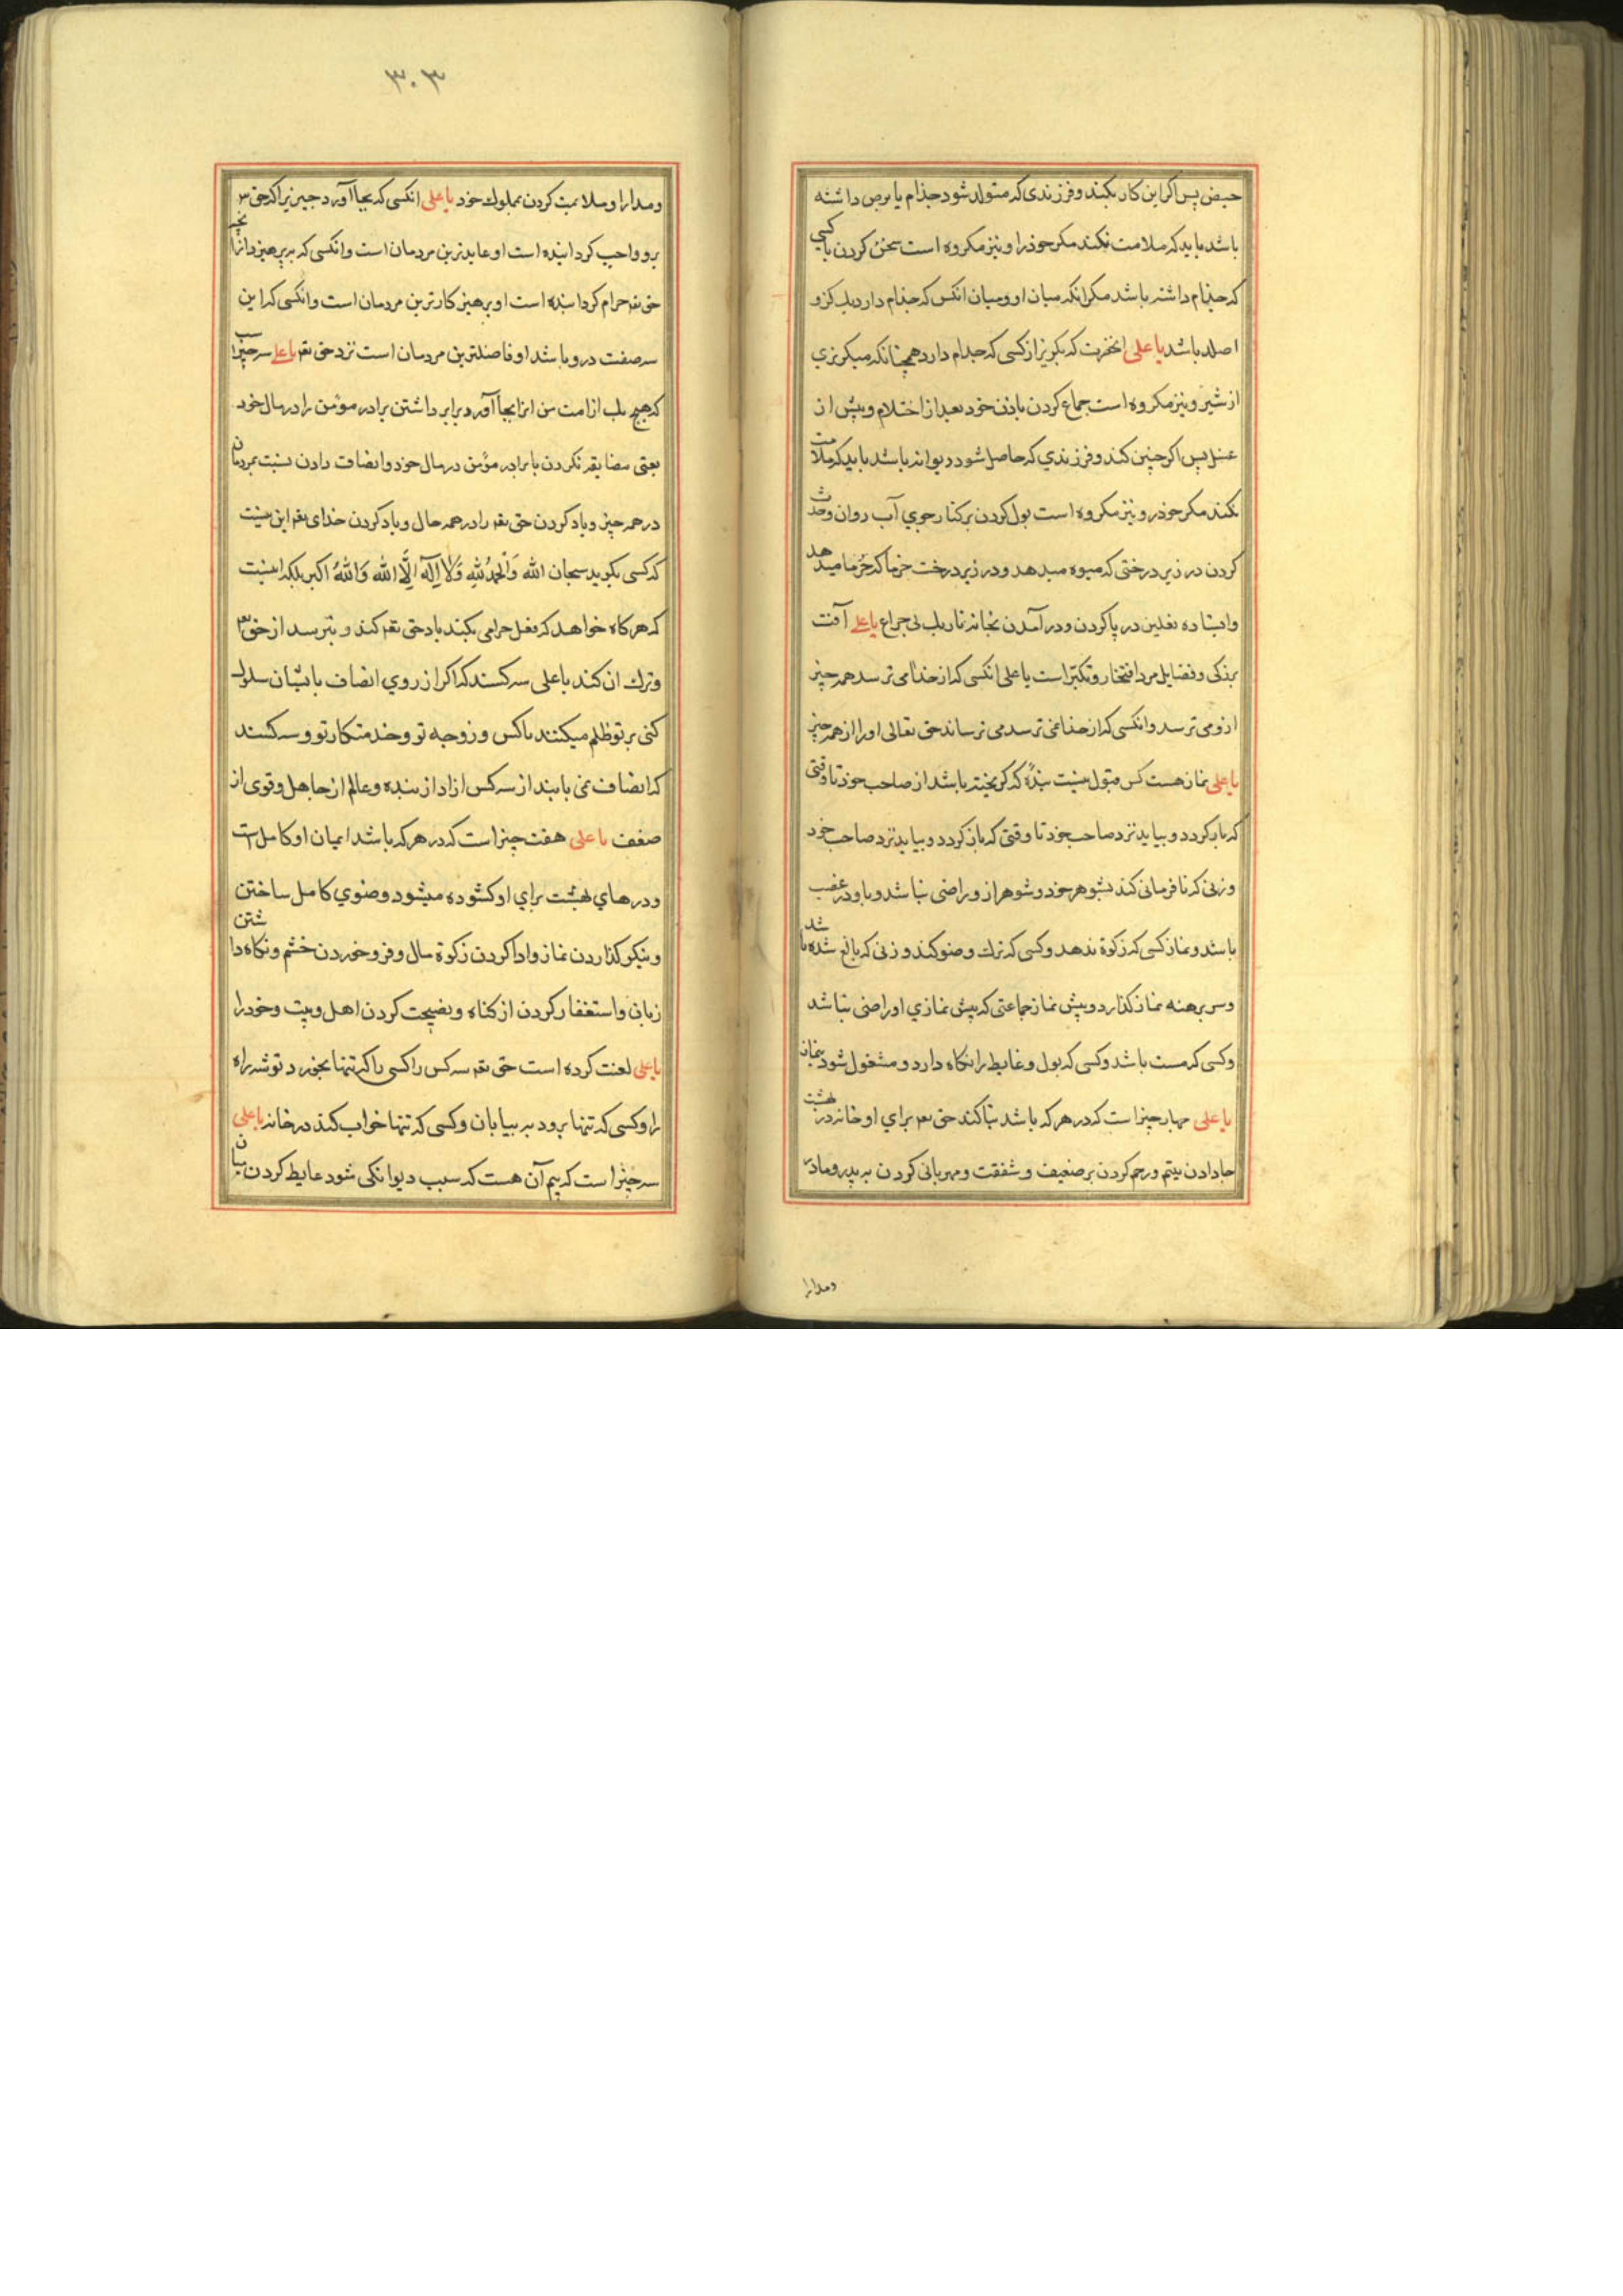 حیض پس اکر این کار بکند و فرزندی که متولد شود جذام یا برص داشته
باشد باید که ملامت نکند مکر خودرا و نیز مکروه است سخن کردن با کسی
که جذام داشته باشد مکر انکه میان او و میان انکس که جذام دارد یک کز و
اصله باشد یا علی انحضرت که بکریز از کسی که جذام دارد همچنانکه میکریزی
از شیر و نیز مکروه است جماع کردن بازن خود بعد از احتلام و پیش از
غسل پس اکر چنین کند و فرزندي که حاصل شود دیوانه باشد باید که ملامت
نکند مکر خودرو نیز مکروه است بول کردن بر کنار جوي آب روان وحدث
کردن در زیر درختی که میوه میدهد و در زیر درخت خرما که خرما میدهد
وایستاده نعلین در پا کردن و در آمدن بخانه تاریک بی چراغ یا علی آفت
بزرکی و فضایل مرد افتخار و تکبر است یا علی انکسی که از خدا می ترسد همه چیز
ازو می ترسد و انکسی که از خدا نمی ترسد می ترساند حق تعالی او را از همه چیز
یا علی نماز هست کس قبول نیست بندهٔ که کریخته باشد از صاحب خود تا وقتی
که باز کردد و بیاید نزد صاحب خود تا وقتی که باز کردد و بیاید نزد صاحب خود
و زنی که نافرمانی کند بشوهر خود و شوهر از و راضی نباشد و با و در غضب
باشد و نماز کسی که زکوة ندهد و کسی که ترک وضو کند و زنی که بالغ شده باشد
و سر برهنه نماز کذارد و پیش نماز جماعتی که بپیش نمازي او راضی نباشد
وکسی که مست باشد وکسی که بول و غایط را نکاه دارد و مشغول شود بنماز
یا علی چهار چیز است که در هر که باشد بنا کند حق تعه براي او خانه در بهشت
جا دادن یتیم و رحم کردن بر ضعیف و شفقت و مهربانی کردن به پدر و مادر
ومدارا
۳۰۳
و مدارا و ملایمت کردن بمملوک خود یا علی انکسی که بجا آورد چیزیرا که حق تعه
برو واجب کردانیده است او عابدترین مردمان است و انکسی که بپرهیزد از انچه
حق تعه حرام کردانیده است او پرهیز کارترین مردمان است و انکسی که این
سه صفت درو باشد او فاضلترین مردمان است نزد حق تعه یا علی سه چیز است
که هیچ یک از امت من انرا بجا آورد برابر داشتن برادر مؤمن را در مال خود
یعنی مضایقه نکردن با برادر مؤمن در مال خود و انصاف دادن نسبت بمردمان
در همه چیز و یاد کردن حق تعه را در همه حال و یاد کردن خدای تعه این نیست
که کسی بکوید سبحان الله وَالْحَمدُ لِلّهِ وَلا اِلَهَ اِلَّا الله وَاللهُ اکبر بلکه اینست
که هرکاه خواهد که فعل حرامی بکند یاد حق تعه کند و بترسد از حق تعه
و ترک ان کند یا علی سه کسند که اکر از روي انصاف با ایشان سلوک
کنی بر تو ظلم میکنند ناکس و زوجه تو و خدمتکار تو و سه کسند
که انصاف نمی یابند از سه کس ازاد از بنده و عالم از جاهل و قوی از
ضعیف یا علی هفت چیز است که در هر که باشد ایمان او کامل است
و درهاي بهشت براي او کشوده میشود وضوي کامل ساختن
و نیکو کذاردن نماز و ادا کردن زکوة مال و فرو خوردن خشم و نکاه داشتن
زبان و استغفار کردن از کناه و نصیحت کردن اهل وبیت و خود را
یا علی لعنت کرده است حق تعه سه کس را کسی را که تنها بخورد توشه راه
را و کسی که تنها برود به بیابان و کسی که تنها خواب کند در خانه یا علی
سه چیز است که بیم آن هست که سبب دیوانکی شود غایط کردن میان